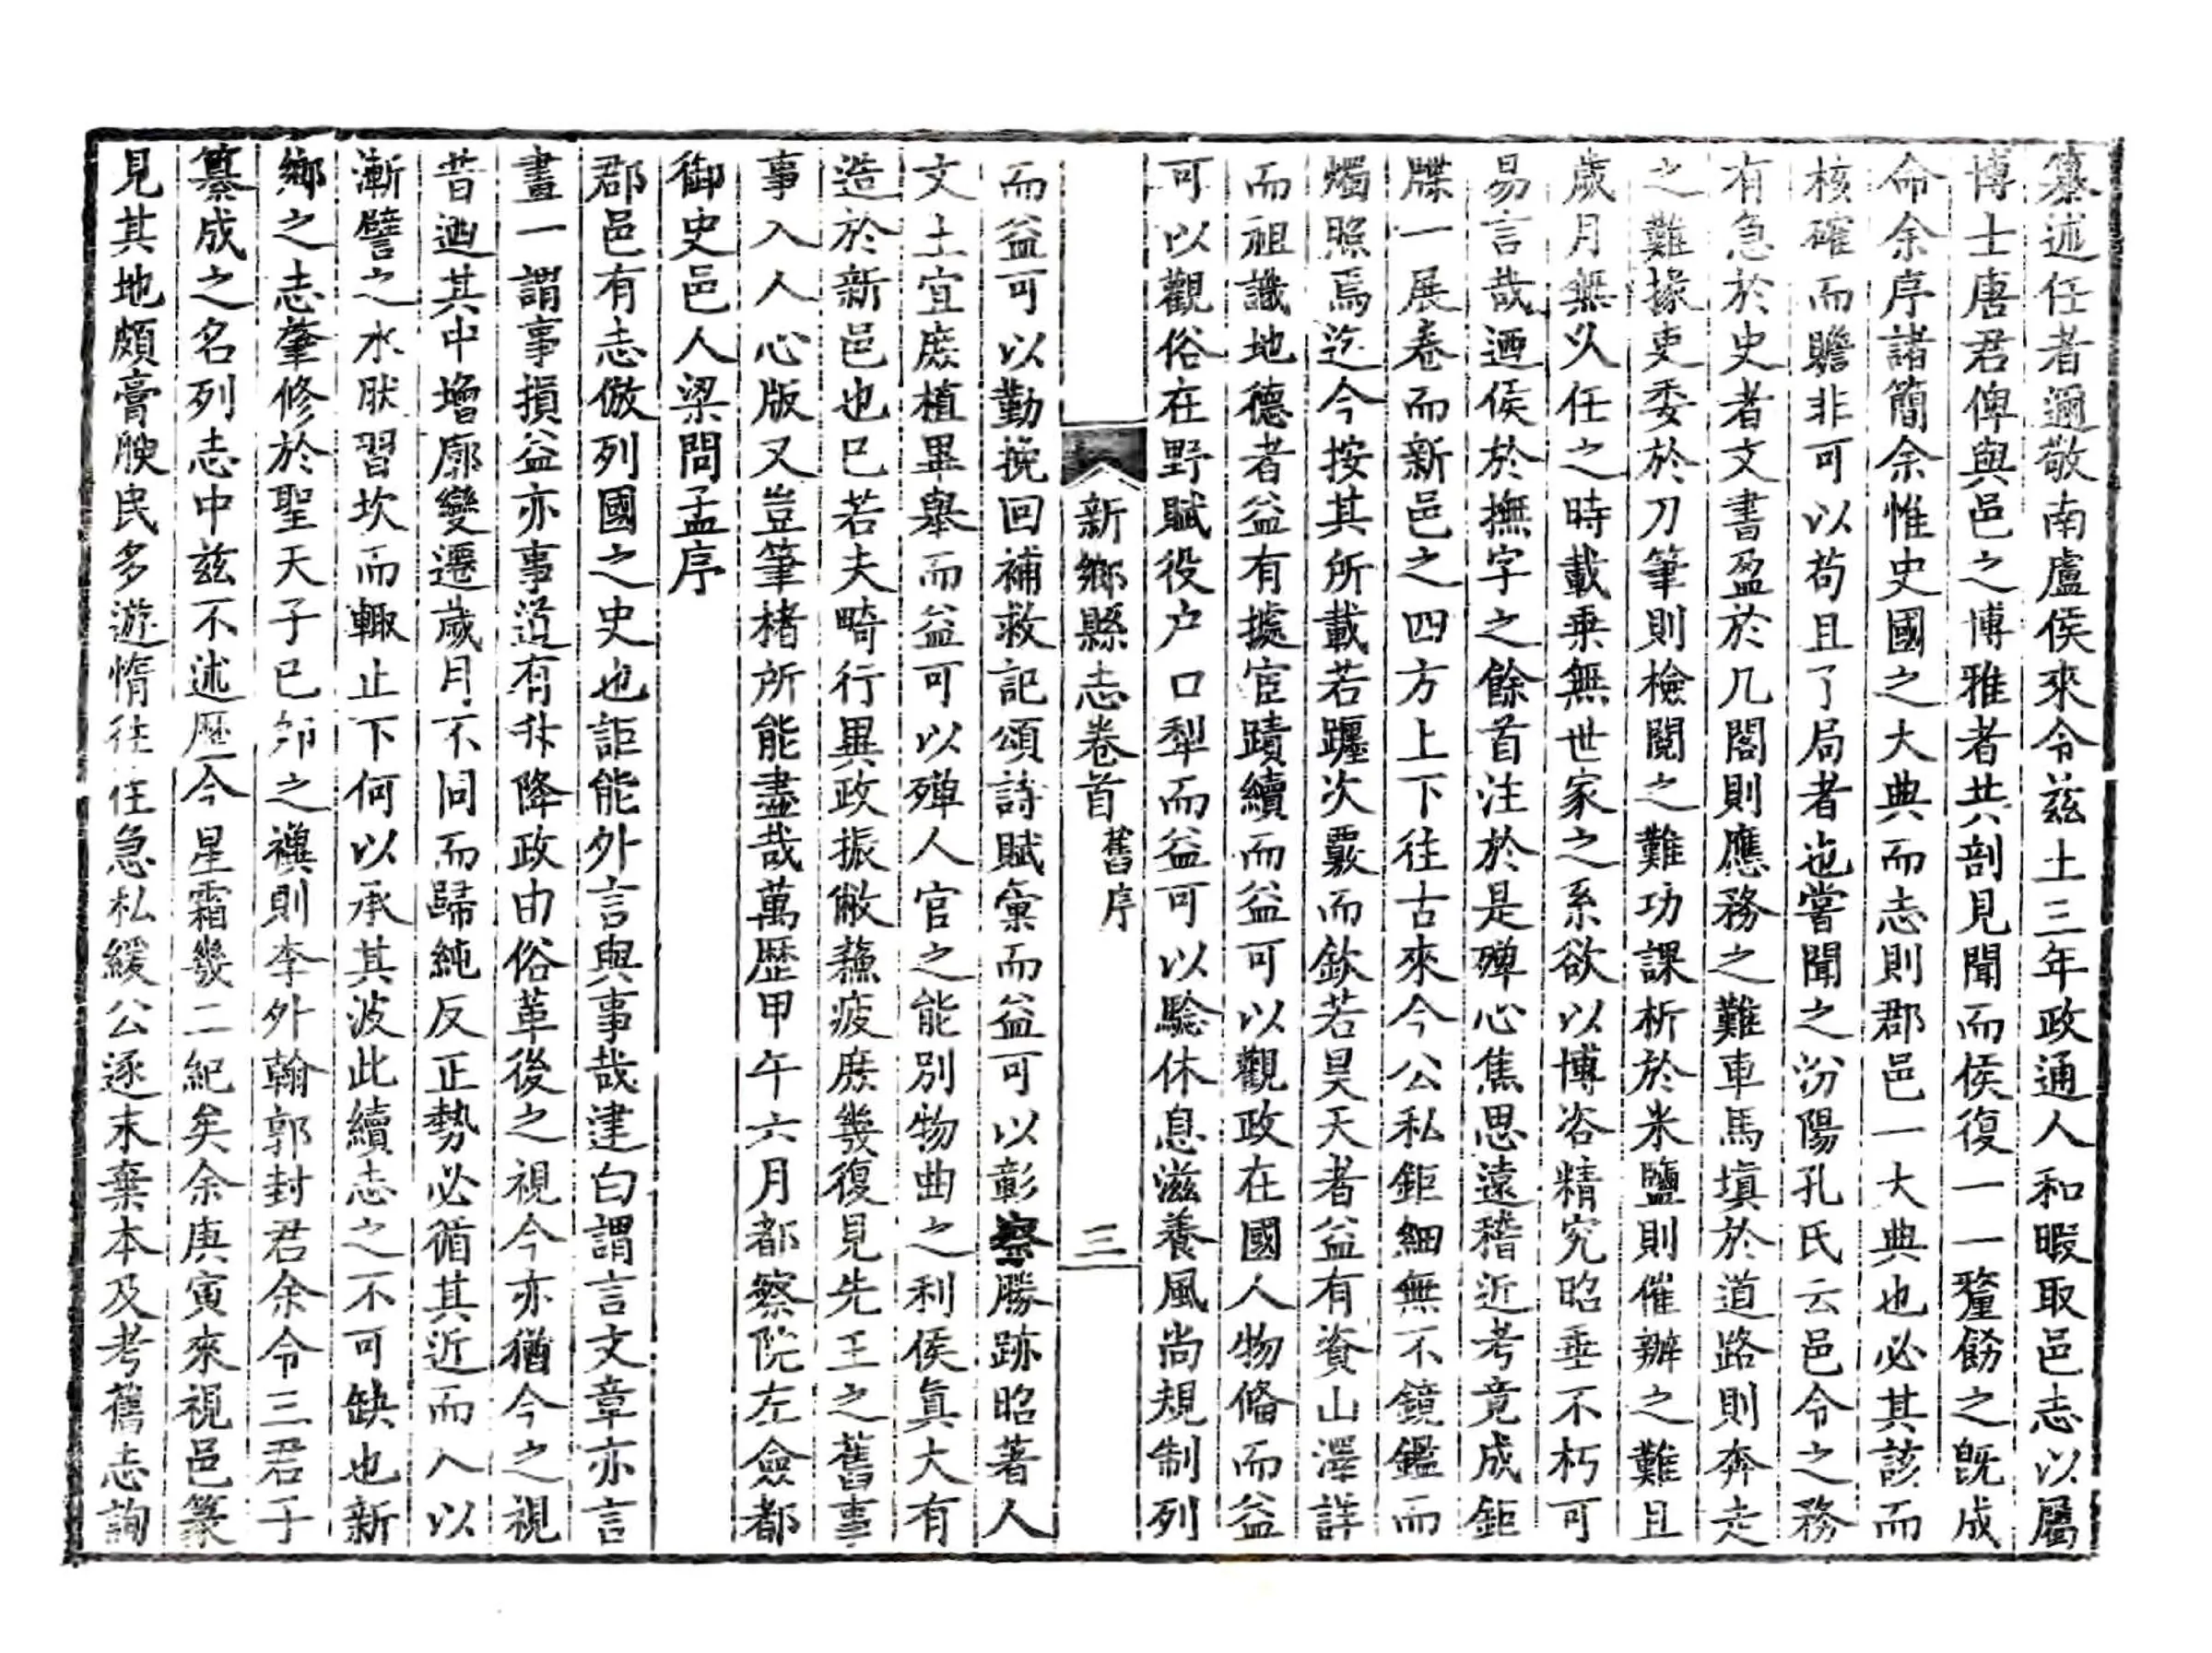 纂述任者邇敬南盧侯來令茲土三年政通人和暇取邑志以屬
博士唐君俾與邑之博雅者共剖見聞而侯復一一釐飭之旣成
命余序諸簡余惟史國之大典而志則郡邑一大典也必其該而
核確而贍非可以苟且了局者也嘗聞之汾陽孔氏云邑令之務
有急於史者文書盈於几閣則應務之難車馬塡於道路則奔走
之難掾吏委於刀筆則檢閱之難功課析於米鹽則催辦之難且
歲月無久任之時載乗無世家之系欲以博咨精究昭垂不朽可
易言哉迺侯於撫字之餘首注於是殫心焦思遠稽近考竟成鉅
牒一展卷而新邑之四方上下往古來今公私鉅細無不鏡鑑而
燭照焉迄今按其所載若躔次覈而欽若昊天者益有資山澤詳
而祖識地德者益有據宦蹟續而益可以觀政在國人物脩而益
可以觀俗在野賦役户口犁而益可以驗休息滋養風尚規制列
新鄉縣志卷首 舊序 三
而益可以勤挽回補救記頌詩賦彙而益可以彰察勝跡昭著人
文土宜庶植畢舉而益可以殫人官之能別物曲之利侯眞大有
造於新邑也巳若夫畸行異政振敝蘇疲庶幾復見先王之舊事
事入人心版又豈筆楮所能盡哉萬歴甲午六月都察院左僉都
御史邑人梁問孟序
郡邑有志倣列國之史也詎能外言與事哉建白謂言文章亦言
畫一謂事損益亦事道有升降政由俗革後之視今亦猶今之視
昔迺其中增廓變遷歲月不同而歸純反正勢必循其近而入以
漸譬之水肰習坎而輙止下何以承其波此續志之不可缺也新
鄉之志肇修於聖天子巳夘之禩則李外翰郭封君余令三君于
纂成之名列志中茲不述歴今星霜幾二紀矣余庚寅來視邑篆
見其地頗膏腴民多遊惰往往急私緩公逐末棄本及考舊志詢